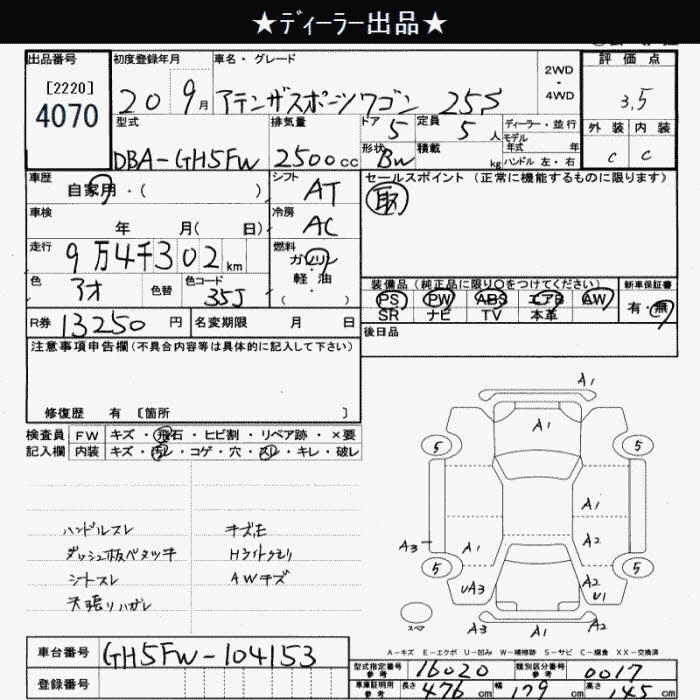 ★ディーラー出品★
出品番号 初度登録年月 車名・グレード 2WD・4WD 評価点
[2220]
4070 20 9月 アテンザスポーツワゴン 25S 3.5
型式 排気量 ドア 5 定員 5人 ディーラー・並行 外装 内装
モデル年式 年
DBA-GH5FW 2500cc 形状 BW 積載 kg ハンドル 左・右 C C
車歴 自家用・( ) シフト AT セールスポイント (正常に機能するものに限ります)
取
車検 年 月( 日) 冷房 AC
走行 9万4千302km 燃料 ガソリン
軽油
( )
色 アオ 色替 色コード 35J
装備品 (純正品に限り○をつけてください) 新車保証書
PS PW ABS エアB AW 有・無
SR ナビ TV 本革
R券 13250円 名変期限 月 日 後日品
注意事項申告欄(不具合内容等は具体的に記入して下さい)
修復歴 有 [箇所 ]
検査員 FW キズ・飛石・ヒビ割・リペア跡・×要
記入欄 内装 キズ・汚レ・コゲ・穴・スレ・キレ・破レ
ハンドルスレ キズ、E
ダッシュ板ベタツキ Hライトクモリ
シートスレ AWキズ
天張リハガレ
A1
A1
5 5
A1
A3 A1 A2
5 5
UA3 A2
U1
スペア A3 A1 A2
A-キズ E-エクボ U-凹み W-補修跡 S-サビ C-腐食 XX-交換済
車台番号 GH5FW-104153
登録番号
型式指定番号 参考 16020 類別区分番号 参考 0017
車庫証明用 参考 長さ 476cm 幅 179cm 高さ 145cm